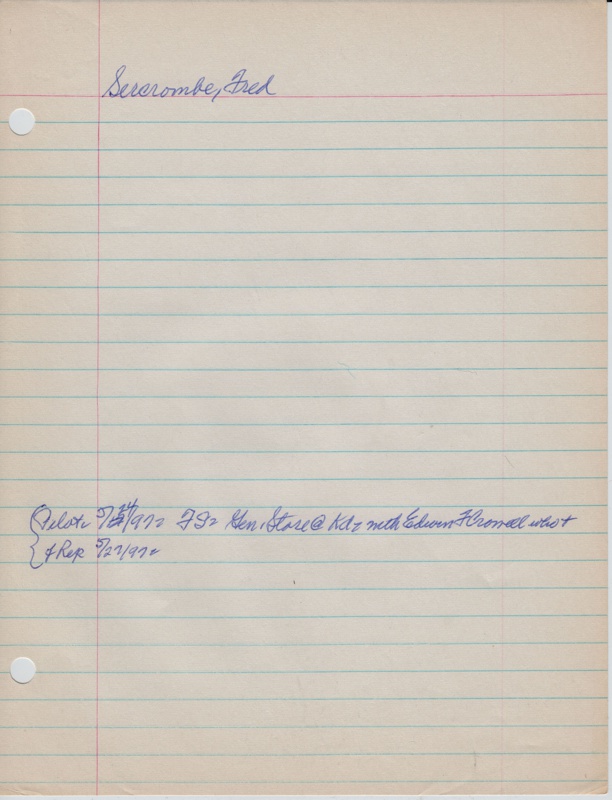 Sercrombe, Fred
Pilot: 5/24/97: FS: Gen. Store @ Kdz with Edwin F Cromell who +
+ Rep 5/27/97: